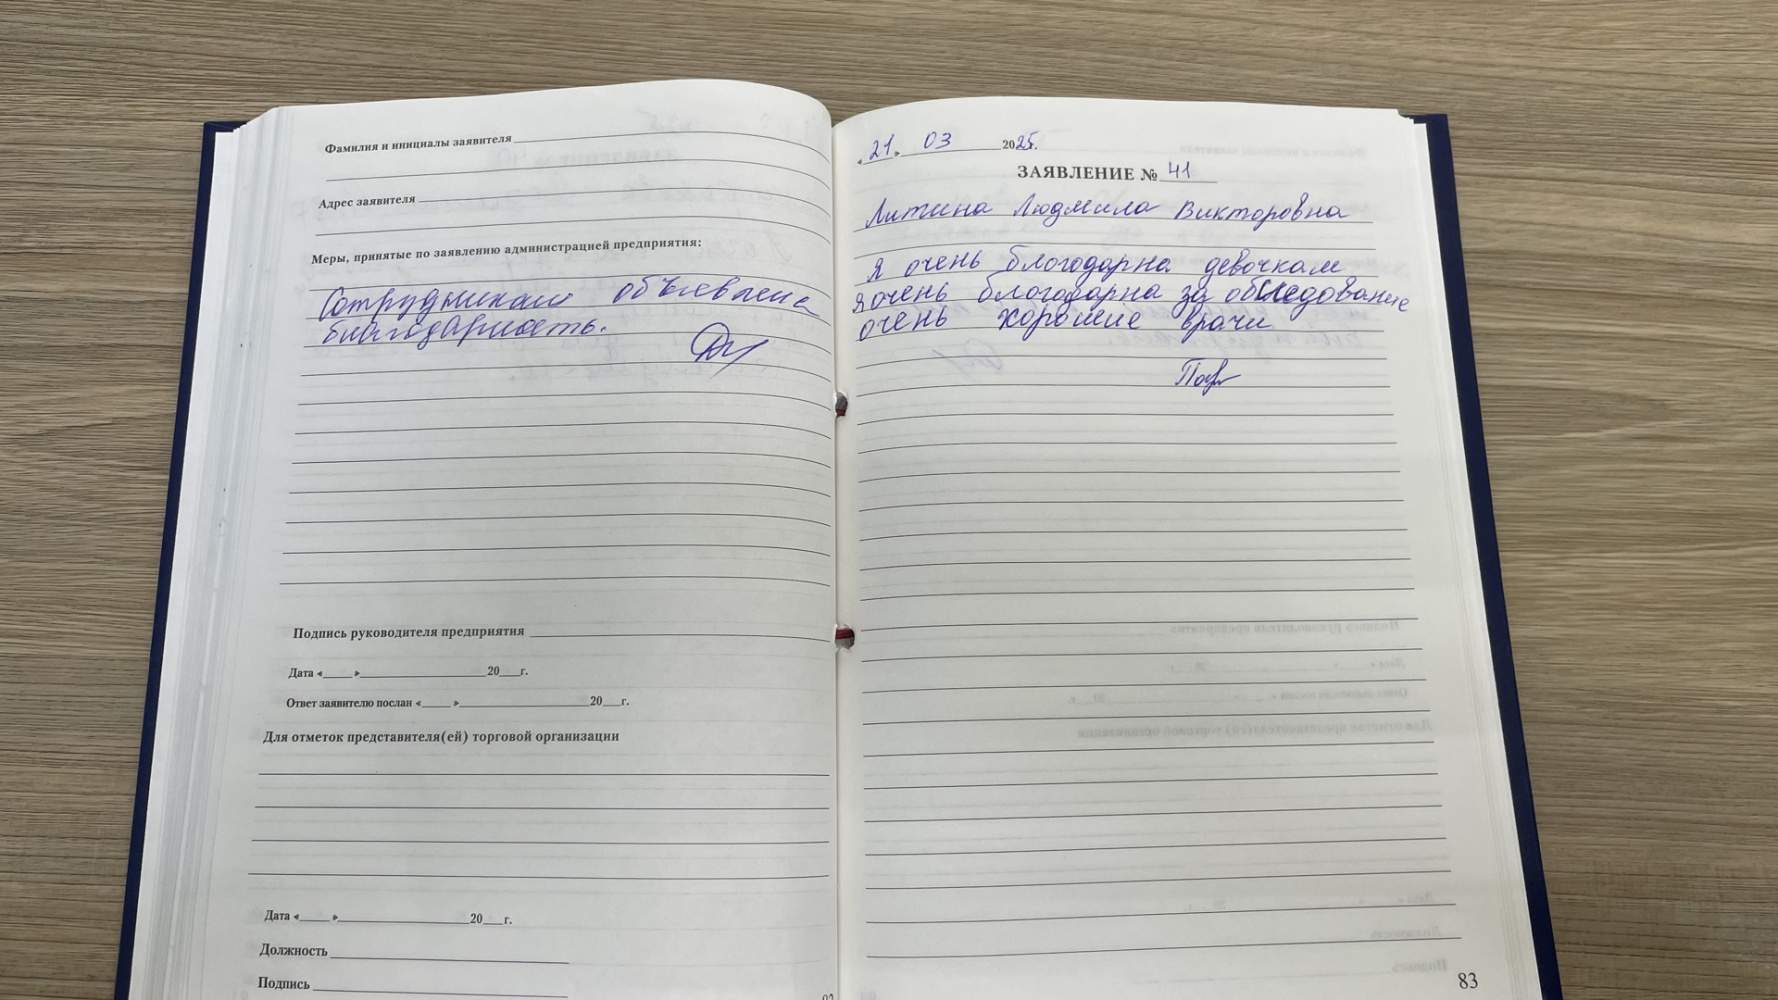 Фамилия и инициалы заявителя
Адрес заявителя
Меры, принятые по заявлению администрацией предприятия:
Сотрудникам объявлена
благодарность.
Подпись руководителя предприятия
Дата « » 20 г.
Ответ заявителю послан « » 20 г.
Для отметок представителя(ей) торговой организации
Дата « » 20 г.
Должность
Подпись
«21» 03 2025г.
ЗАЯВЛЕНИЕ № 41
Людмила Викторовна
Я очень благодарна девочкам
я очень благодарна за обследование
очень хорошие врачи
83